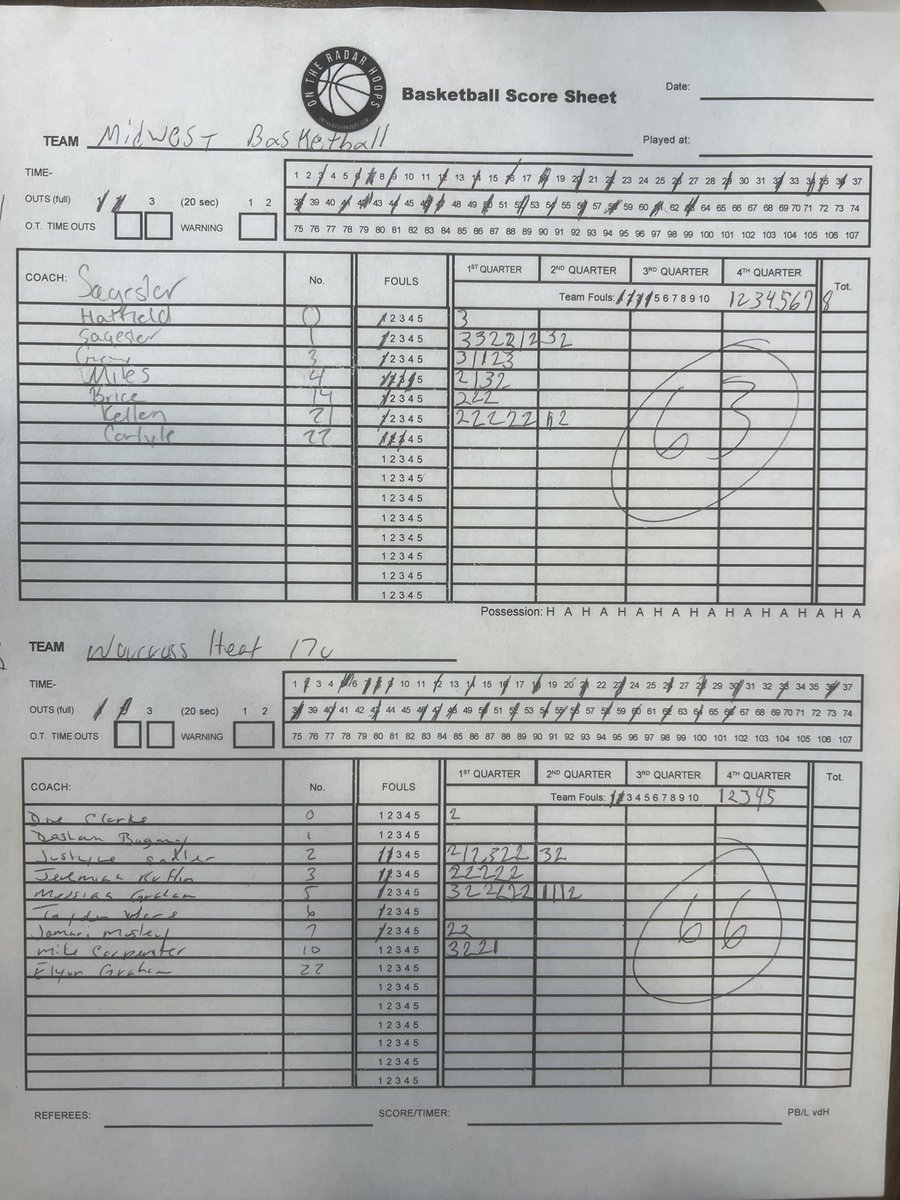 ON THE RADAR HOOPS
Basketball Score Sheet
Date:
TEAM Midwest Basketball
Played at:
TIME-
1 2 3 4 5 6 7 8 9 10 11 12 13 14 15 16 17 18 19 20 21 22 23 24 25 26 27 28 29 30 31 32 33 34 35 36 37
OUTS (full) 1 2 3 (20 sec) 1 2
38 39 40 41 42 43 44 45 46 47 48 49 50 51 52 53 54 55 56 57 58 59 60 61 62 63 64 65 66 67 68 69 70 71 72 73 74
O.T. TIME OUTS WARNING
75 76 77 78 79 80 81 82 83 84 85 86 87 88 89 90 91 92 93 94 95 96 97 98 99 100 101 102 103 104 105 106 107
COACH: Sagester No. FOULS 1ST QUARTER 2ND QUARTER 3RD QUARTER 4TH QUARTER Tot.
Team Fouls: 1 2 3 4 5 6 7 8 9 10 1 2 3 4 5 6 7 8
Hatfield 0 1 2 3 4 5 3
Sagester 1 1 2 3 4 5 3322212 32
3 1 2 3 4 5 31123
Miles 4 1 2 3 4 5 2132
Brice 14 1 2 3 4 5 222
Kellen 21 1 2 3 4 5 22222 112
Carlyle 22 1 2 3 4 5
1 2 3 4 5
1 2 3 4 5
1 2 3 4 5
1 2 3 4 5
1 2 3 4 5
1 2 3 4 5
1 2 3 4 5
1 2 3 4 5
63
Possession: H A H A H A H A H A H A H A H A H A
TEAM Warcross Heat 17u
TIME-
1 2 3 4 5 6 7 8 9 10 11 12 13 14 15 16 17 18 19 20 21 22 23 24 25 26 27 28 29 30 31 32 33 34 35 36 37
OUTS (full) 1 2 3 (20 sec) 1 2
38 39 40 41 42 43 44 45 46 47 48 49 50 51 52 53 54 55 56 57 58 59 60 61 62 63 64 65 66 67 68 69 70 71 72 73 74
O.T. TIME OUTS WARNING
75 76 77 78 79 80 81 82 83 84 85 86 87 88 89 90 91 92 93 94 95 96 97 98 99 100 101 102 103 104 105 106 107
COACH: No. FOULS 1ST QUARTER 2ND QUARTER 3RD QUARTER 4TH QUARTER Tot.
Team Fouls: 1 2 3 4 5 6 7 8 9 10 1 2 3 4 5
Dre Clarke 0 1 2 3 4 5 2
Deshan 1 1 2 3 4 5
2 1 2 3 4 5 212322 32
Jeremiah Ruffin 3 1 2 3 4 5 22222
Messiah Graham 5 1 2 3 4 5 3222122 1112
6 1 2 3 4 5
Jamari 7 1 2 3 4 5 22
Mike Carpenter 10 1 2 3 4 5 3221
Elyon Graham 22 1 2 3 4 5
1 2 3 4 5
1 2 3 4 5
1 2 3 4 5
1 2 3 4 5
1 2 3 4 5
1 2 3 4 5
66
REFEREES: SCORE/TIMER: PB/L vdH